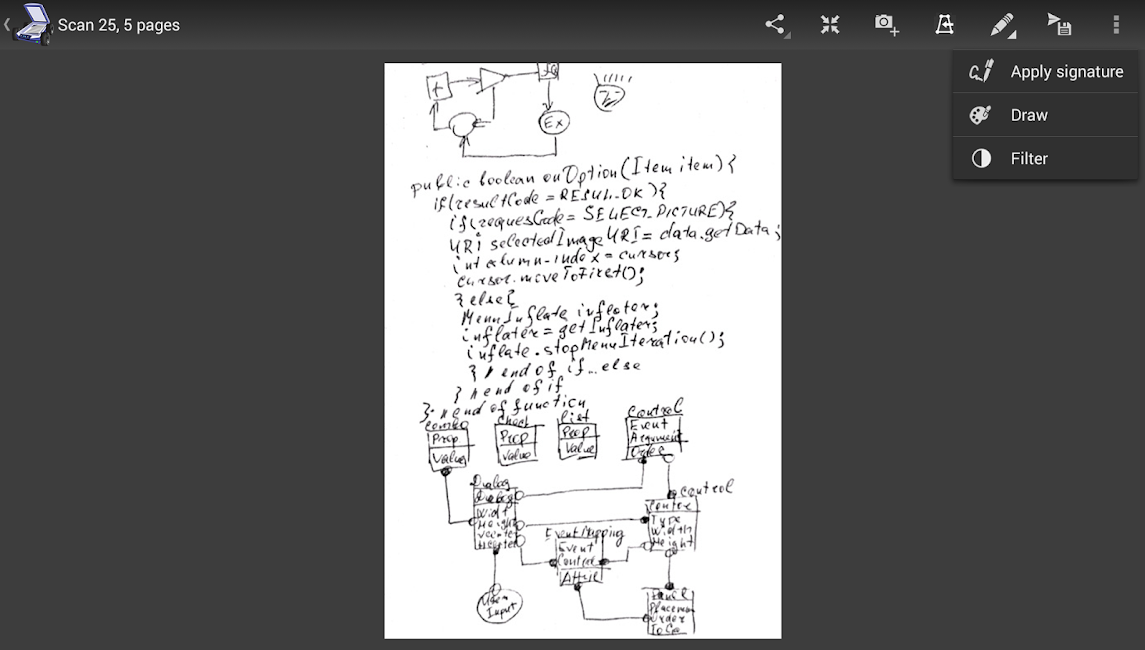 Scan 25, 5 pages
Apply signature
Draw
Filter
+
Ex
public boolean onOption(Item item){
if(resultCode = RESUL_OK){
if(requesCode= SELECT_PICTURE){
URi selectedImageURI= data.getData;
int column-index = cursor;
cursor.moveToFirst();
} else{
MenuInflate inflater;
inflater = getInflater;
inflate.stopMenuIteration();
} // end of if...else
} // end of if
}; // end of function
Combo
Check
List
Control
Prop
Value
Prop
Value
Prop
Value
Event
Argument
Order
Dialog
Dialog
Widt
Height
Control
Type
Width
Height
Event Mapping
Event
Control
Attrib
User
Input
Placemen
Order